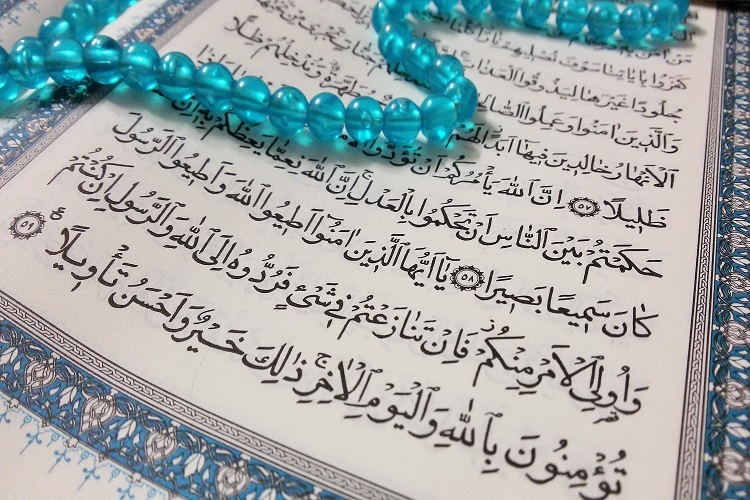 مَنْ اٰمَنَ
كَفَرُوا بِاٰيَاتِنَا سَوْفَ نُصْلِيهِمْ نَارًا
جُلُودًا غَيْرَهَا لِيَذُوقُوا الْعَذَابَ
وَالَّذِينَ اٰمَنُوا وَعَمِلُوا الصَّالِحَاتِ جَنَّاتٍ تَجْرِي مِنْ تَحْتِهَا
الْاَنْهَارُ خَالِدِينَ فِيهَا اَبَدًا لَهُمْ مُطَهَّرَةٌ وَنُدْخِلُهُمْ ظِلًّا
ظَلِيلًا ﴿٥٧﴾ اِنَّ اللّٰهَ يَأْمُرُكُمْ اَنْ تُؤَدُّوا
حَكَمْتُمْ بَيْنَ النَّاسِ اَنْ تَحْكُمُوا بِالْعَدْلِ اِنَّ اللّٰهَ نِعِمَّا يَعِظُكُمْ بِهِ اِنَّ
كَانَ سَمِيعًا بَصِيرًا ﴿٥٨﴾ يَا اَيُّهَا الَّذِينَ اٰمَنُوا اَطِيعُوا اللّٰهَ وَاَطِيعُوا الرَّسُولَ
وَاُولِي الْاَمْرِ مِنْكُمْ فَاِنْ تَنَازَعْتُمْ فِي شَيْءٍ فَرُدُّوهُ اِلَى اللّٰهِ وَالرَّسُولِ اِنْ كُنْتُمْ
تُؤْمِنُونَ بِاللّٰهِ وَالْيَوْمِ الْاٰخِرِ ذٰلِكَ خَيْرٌ وَاَحْسَنُ تَأْوِيلًا ﴿٥٩﴾